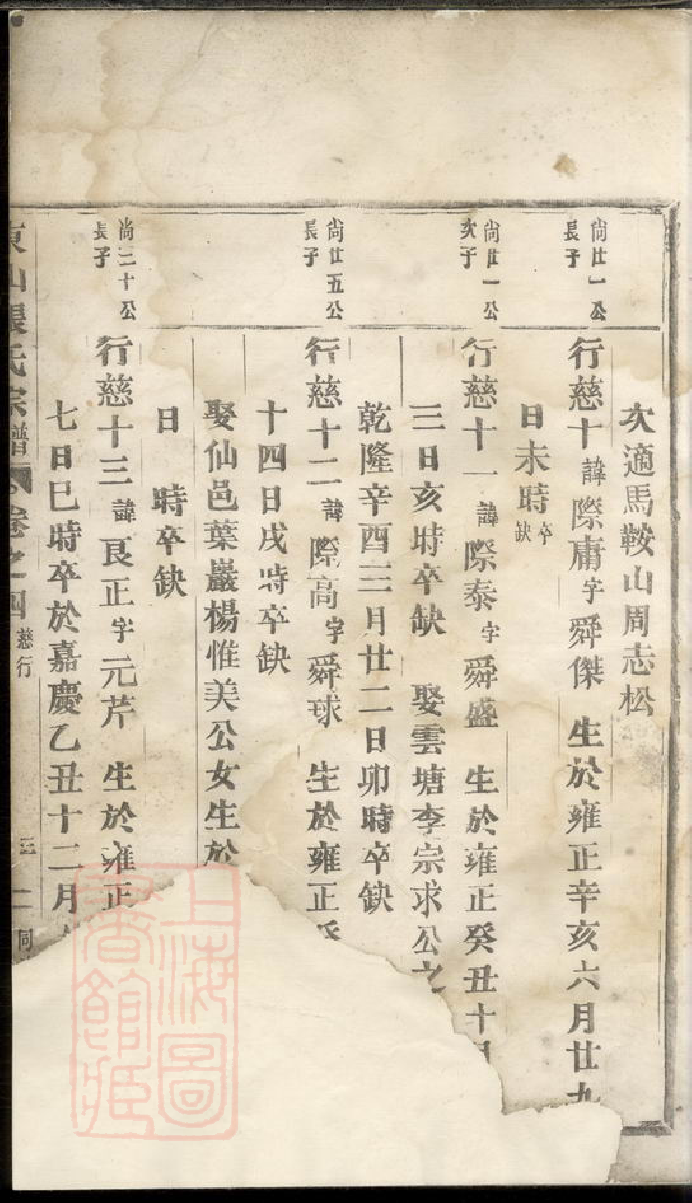 次適馬鞍山周志松
尙廿一公長子
行慈十諱際庸字舜傑 生於雍正辛亥六月廿九
日未時卒缺
尙廿一公次子
行慈十一諱際泰字舜盛 生於雍正癸丑十月
三日亥時卒缺 娶雲塘李宗求公之
乾隆辛酉三月廿二日卯時卒缺
尙廿五公長子
行慈十二諱際高字舜球 生於雍正
十四日戌時卒缺
娶仙邑葉巖楊惟美公女生於
日 時卒缺
尙三十公長子
行慈十三諱艮正字元芹 生於雍正
七日巳時卒於嘉慶乙丑十二月
東山張氏宗譜 卷之四 慈行 三 二 同
上海圖書館藏